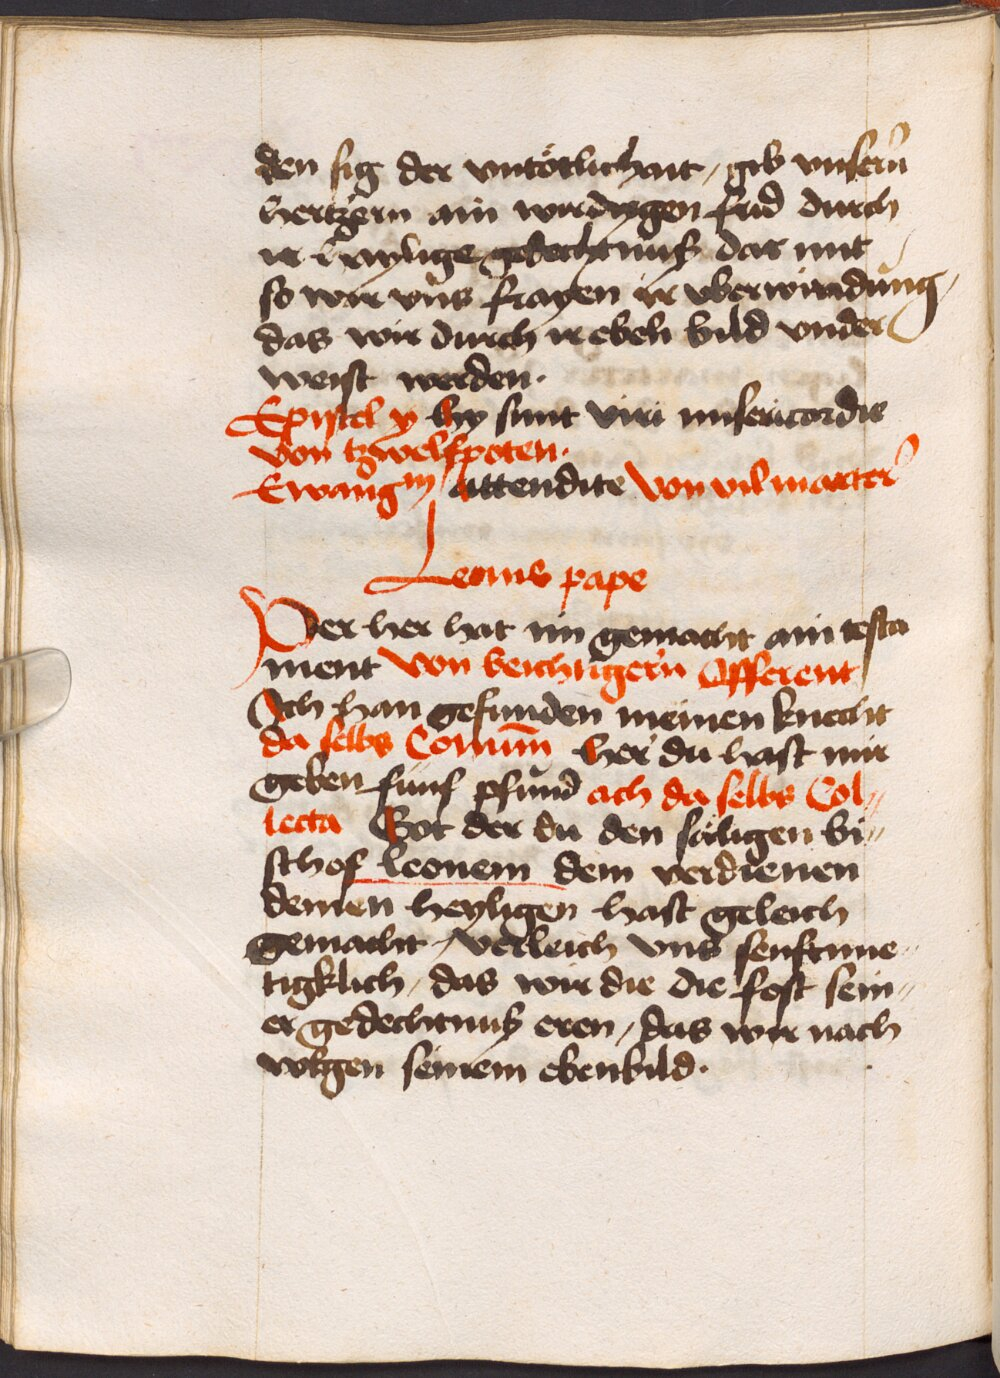 den sig der vntötlichait / gib vnsern̄
hertzern ain wirdygen frid durch
ir haylige gedechtnuß dar mit
so wir vns frayen ir vberwindung /
das wir durch ir eben bild vnder
weist werden .
Epistel y hy sunt viri misericordie
von tzwelfpoten .
Ewangm attendite von vil marter̄
Leonis pape
Der her hat im gemacht ain testa
ment von beichtigern̄ Offerent
Ich han gefunden meinen knecht
da selbs Comū̄m her du hast mir
geben funf pfund ach da selbs Col„
lecta Got der du den säligen bi„
schof leonem dem verdienen
deinen heyligen hast geleich
gemacht / verleich vns senftmue„
tigklich / das wir die die fest sein„
er gedechtnuß eren / das wir nach
volgen seinem ebenbild .